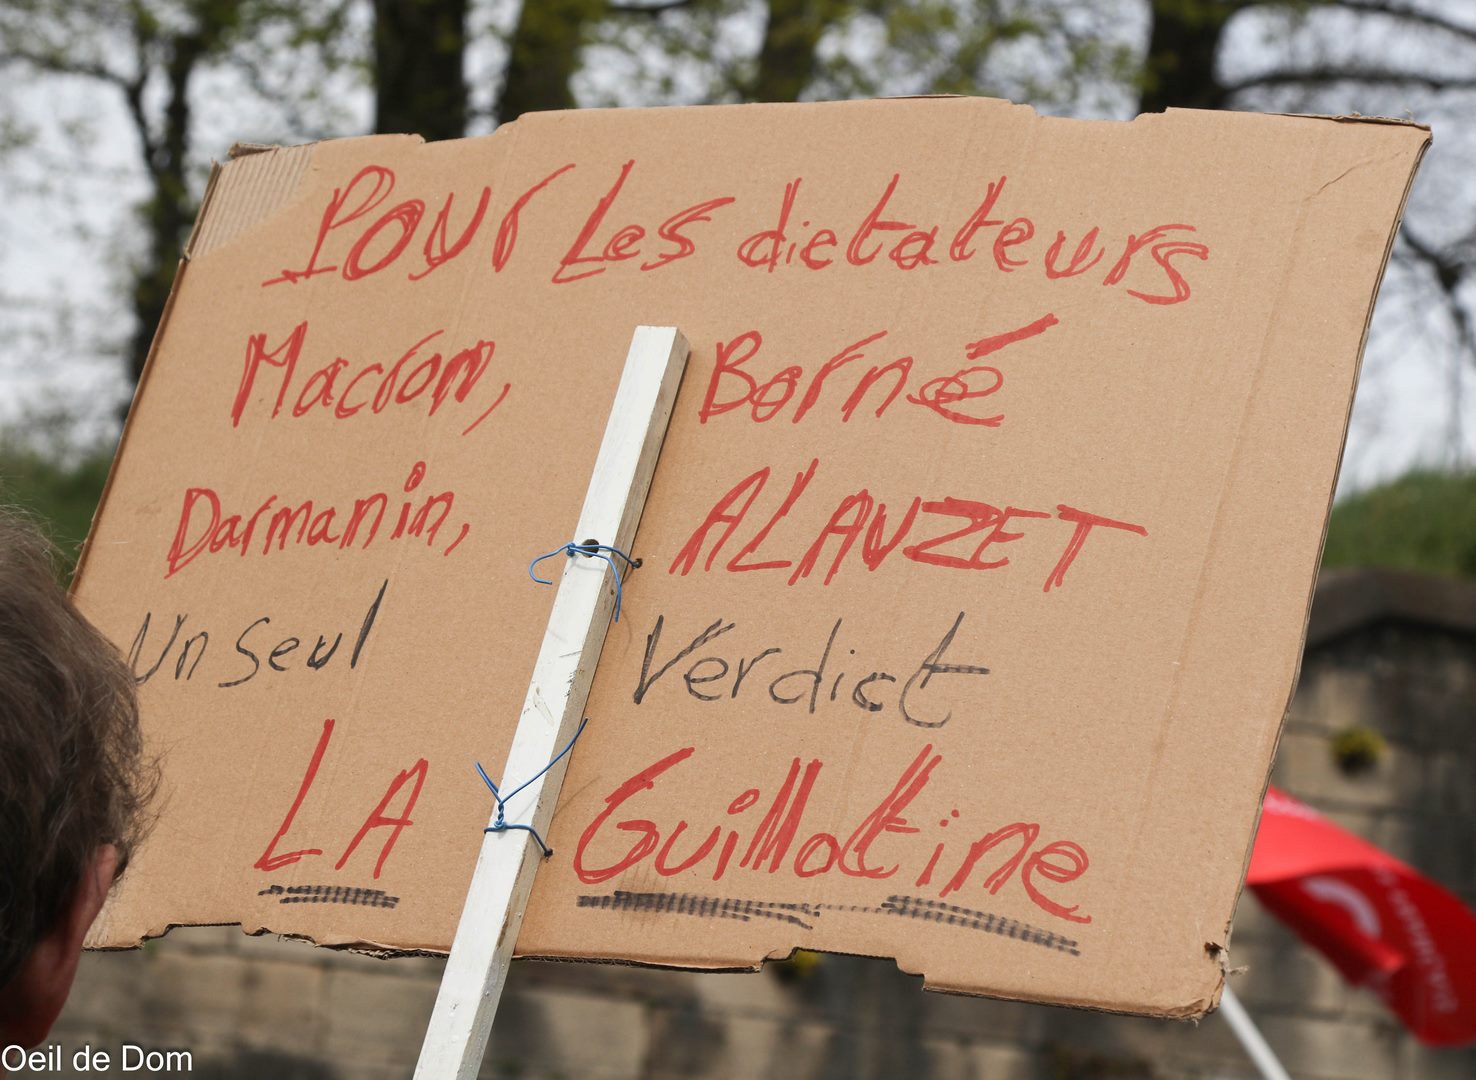 Pour Les dictateurs
Macron, Borné
Darmanin, ALAUZET
Un seul Verdict
LA Guillotine
Oeil de Dom